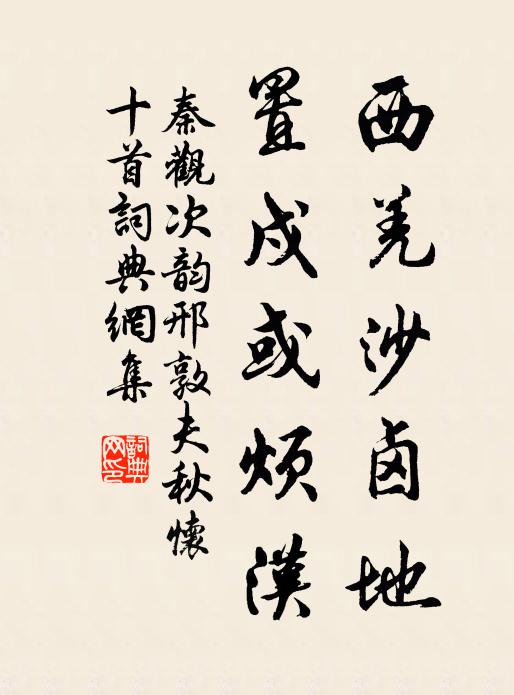 西羌沙鹵地
置戍或煩漢
秦觀次韵邢敦夫秋懷
十首詞典網集
詞典网印